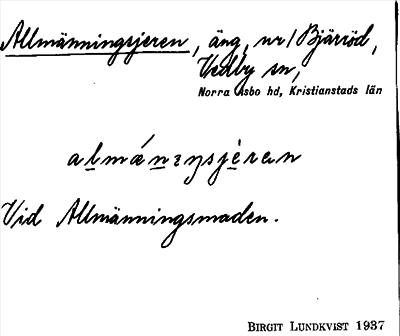 Allmänningsjeren, äng, nr 1 Bjärröd,
Vedby sn,
Norra Åsbo hd, Kristianstads län
almánɪŋsjèrан
Vid Allmänningsmaden.
BIRGIT LUNDKVIST 1937